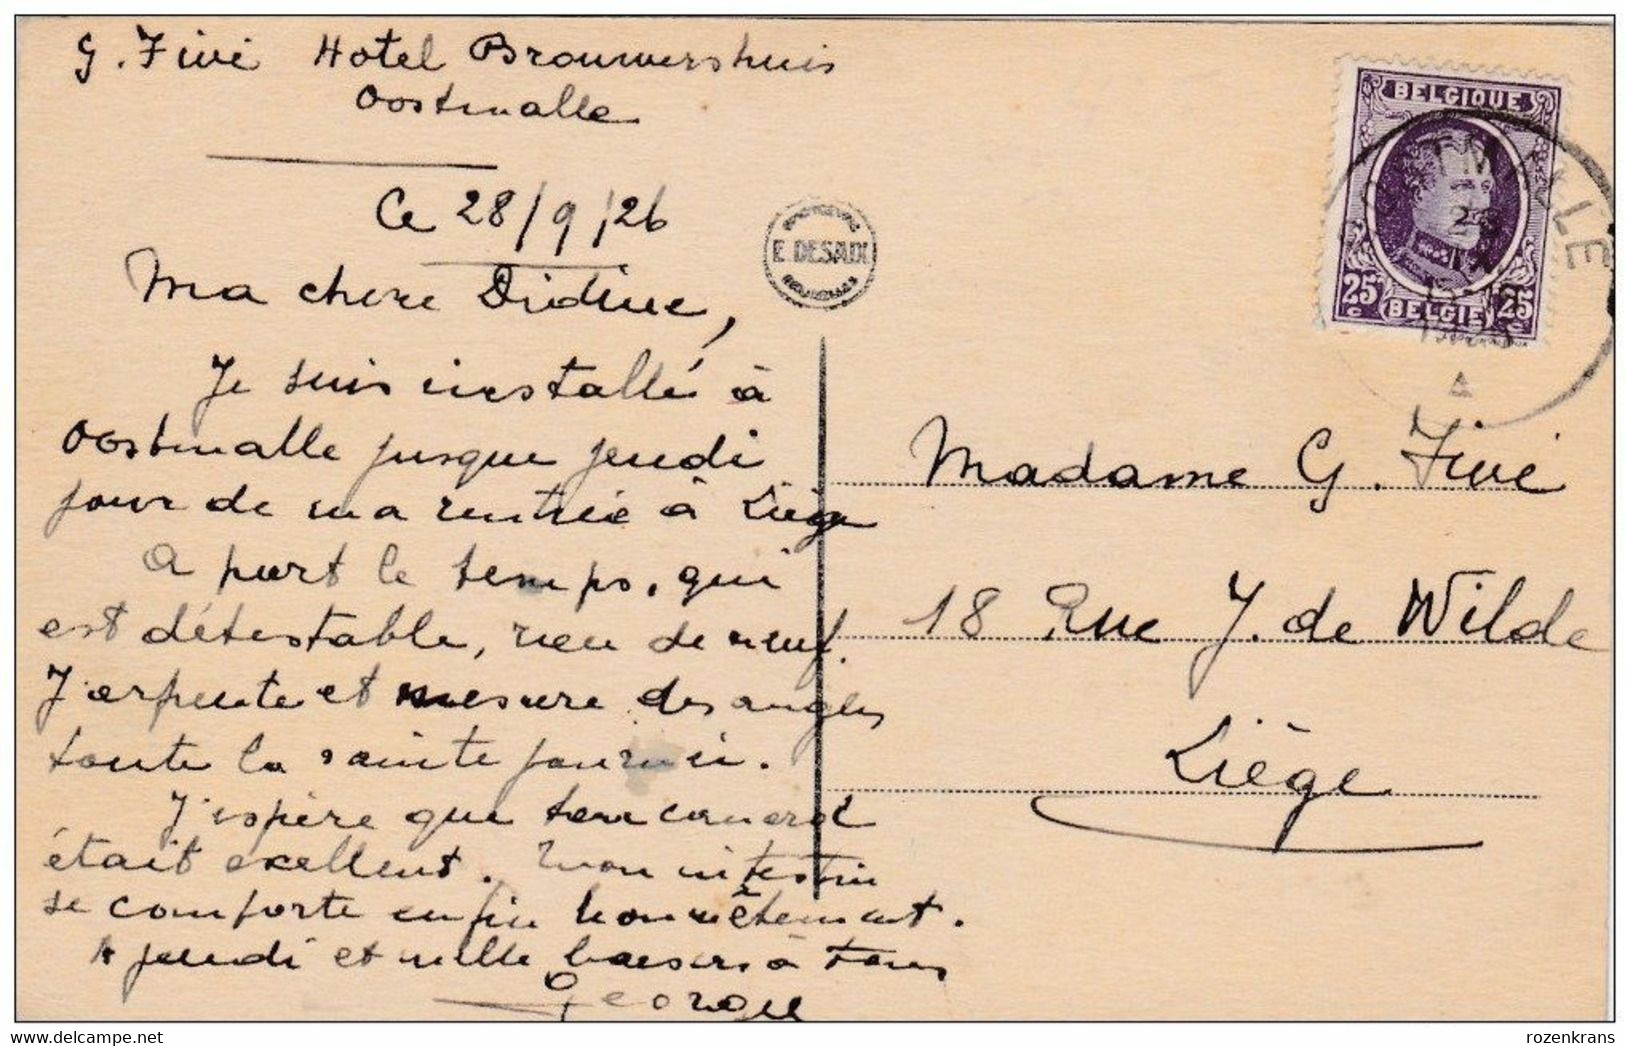 G. Fivé Hotel Brouwershuis
Oostmalle
Ce 28/9/26
Ma chere Didine,
Je suis installé à
Oostmalle jusque jeudi
jour de ma rentrée à Liège
A part le temps, qui
est détestable, rien de neuf.
J'arpente et mesure des angles
toute la sainte journée.
J'espère que ton canard
était exellent. Mon intestin
se comporte enfin honnêtement.
A jeudi et mille baisers à tous
George
E. DESAIX
BELGIQUE
25 BELGIE 25
Madame G. Fivé
18 Rue J. de Wilde
Liège
rozenkrans